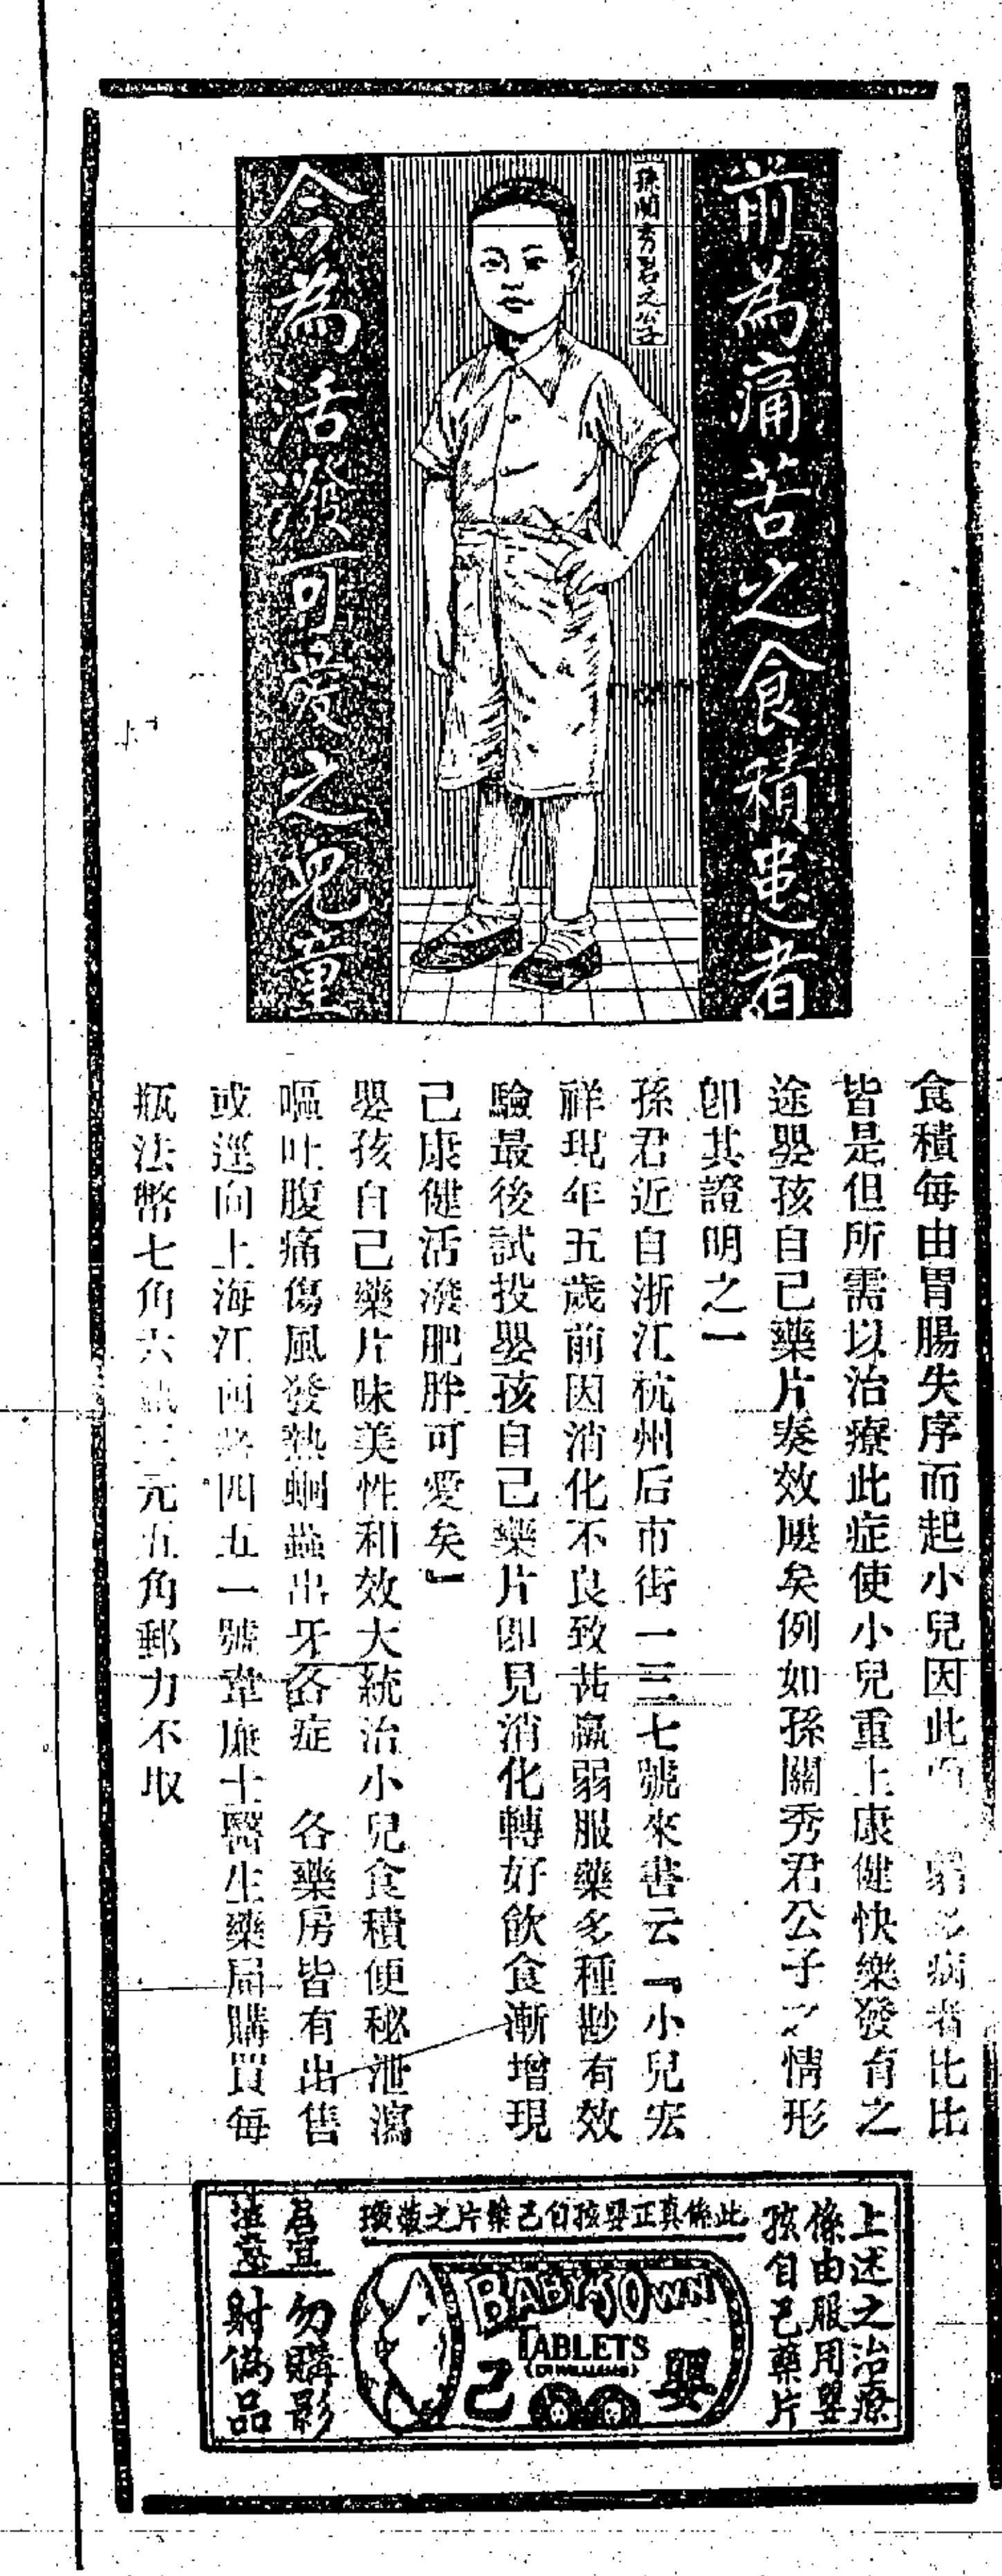 前為痛苦之食積患者
孫關秀君之公子
今為活潑可愛之兒童
食積每由胃腸失序而起小兒因此弱多病者比比
皆是但所需以治療此症使小兒重上康健快樂發育之
途嬰孩自己藥片奏效屢矣例如孫關秀君公子之情形
卽其證明之一
孫君近自浙江杭州后市街一三七號來書云『小兒宏
祥現年五歲前因消化不良致甚羸弱服藥多種尠有效
驗最後試投嬰孩自己藥片卽見消化轉好飲食漸增現
己康健活潑肥胖可愛矣』
嬰孩自己藥片味美性和效大統治小兒食積便秘泄瀉
嘔吐腹痛傷風發熱蛔蟲出牙各症　各藥房皆有出售
或逕向上海江西路四五一號韋廉士醫生藥局購買每
瓶法幣七角六瓶三元五角郵力不取
上述之治療
係由服用嬰
孩自己藥片
此係真正嬰孩自己藥片之裝璜
BABY'S OWN
TABLETS
(DR WILLIAMS)
嬰
己
君宜勿購影
注意射偽品